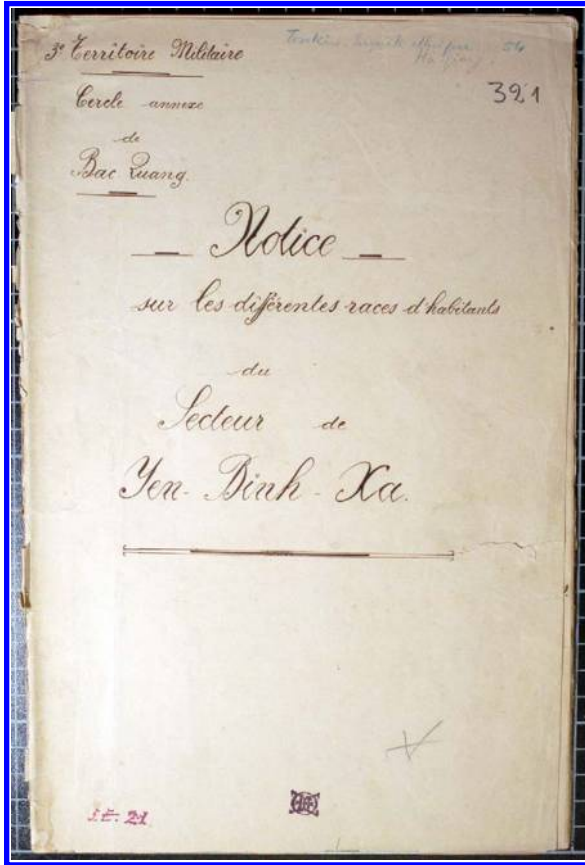 3e Territoire Militaire
Cercle annexe
de
Bac Quang.
Tonkin. 54
321
Notice
sur les différentes races d'habitants
du
Secteur de
Yen-Binh-Xa.